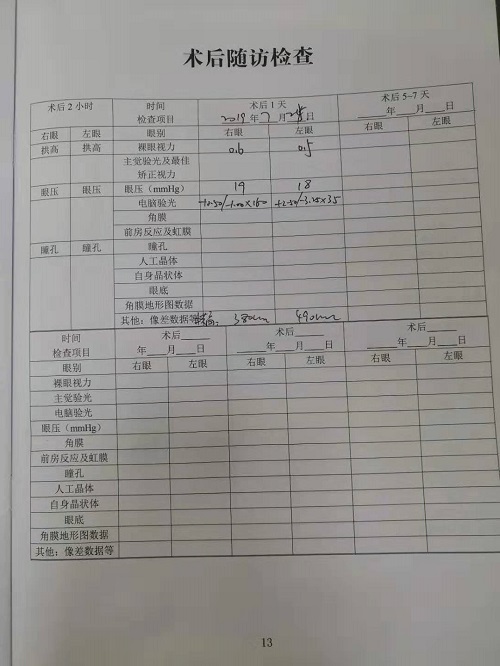 术后随访检查
术后2小时 时间 术后1天 术后5~7天
检查项目 2019年7月24日 年 月 日
右眼 左眼 眼别 右眼 左眼 右眼 左眼
拱高 拱高 裸眼视力 0.6 0.5
主觉验光及最佳
矫正视力
眼压 眼压 眼压（mmHg） 19 18
电脑验光 +2.50/-3.25×35
角膜
前房反应及虹膜
瞳孔 瞳孔 瞳孔
人工晶体
自身晶状体
眼底
角膜地形图数据
其他：像差数据等 拱高: 380um 490um
时间 术后 术后 术后
检查项目 年 月 日 年 月 日 年 月 日
眼别 右眼 左眼 右眼 左眼 右眼 左眼
裸眼视力
主觉验光
电脑验光
眼压（mmHg）
角膜
前房反应及虹膜
瞳孔
人工晶体
自身晶状体
眼底
角膜地形图数据
其他：像差数据等
13